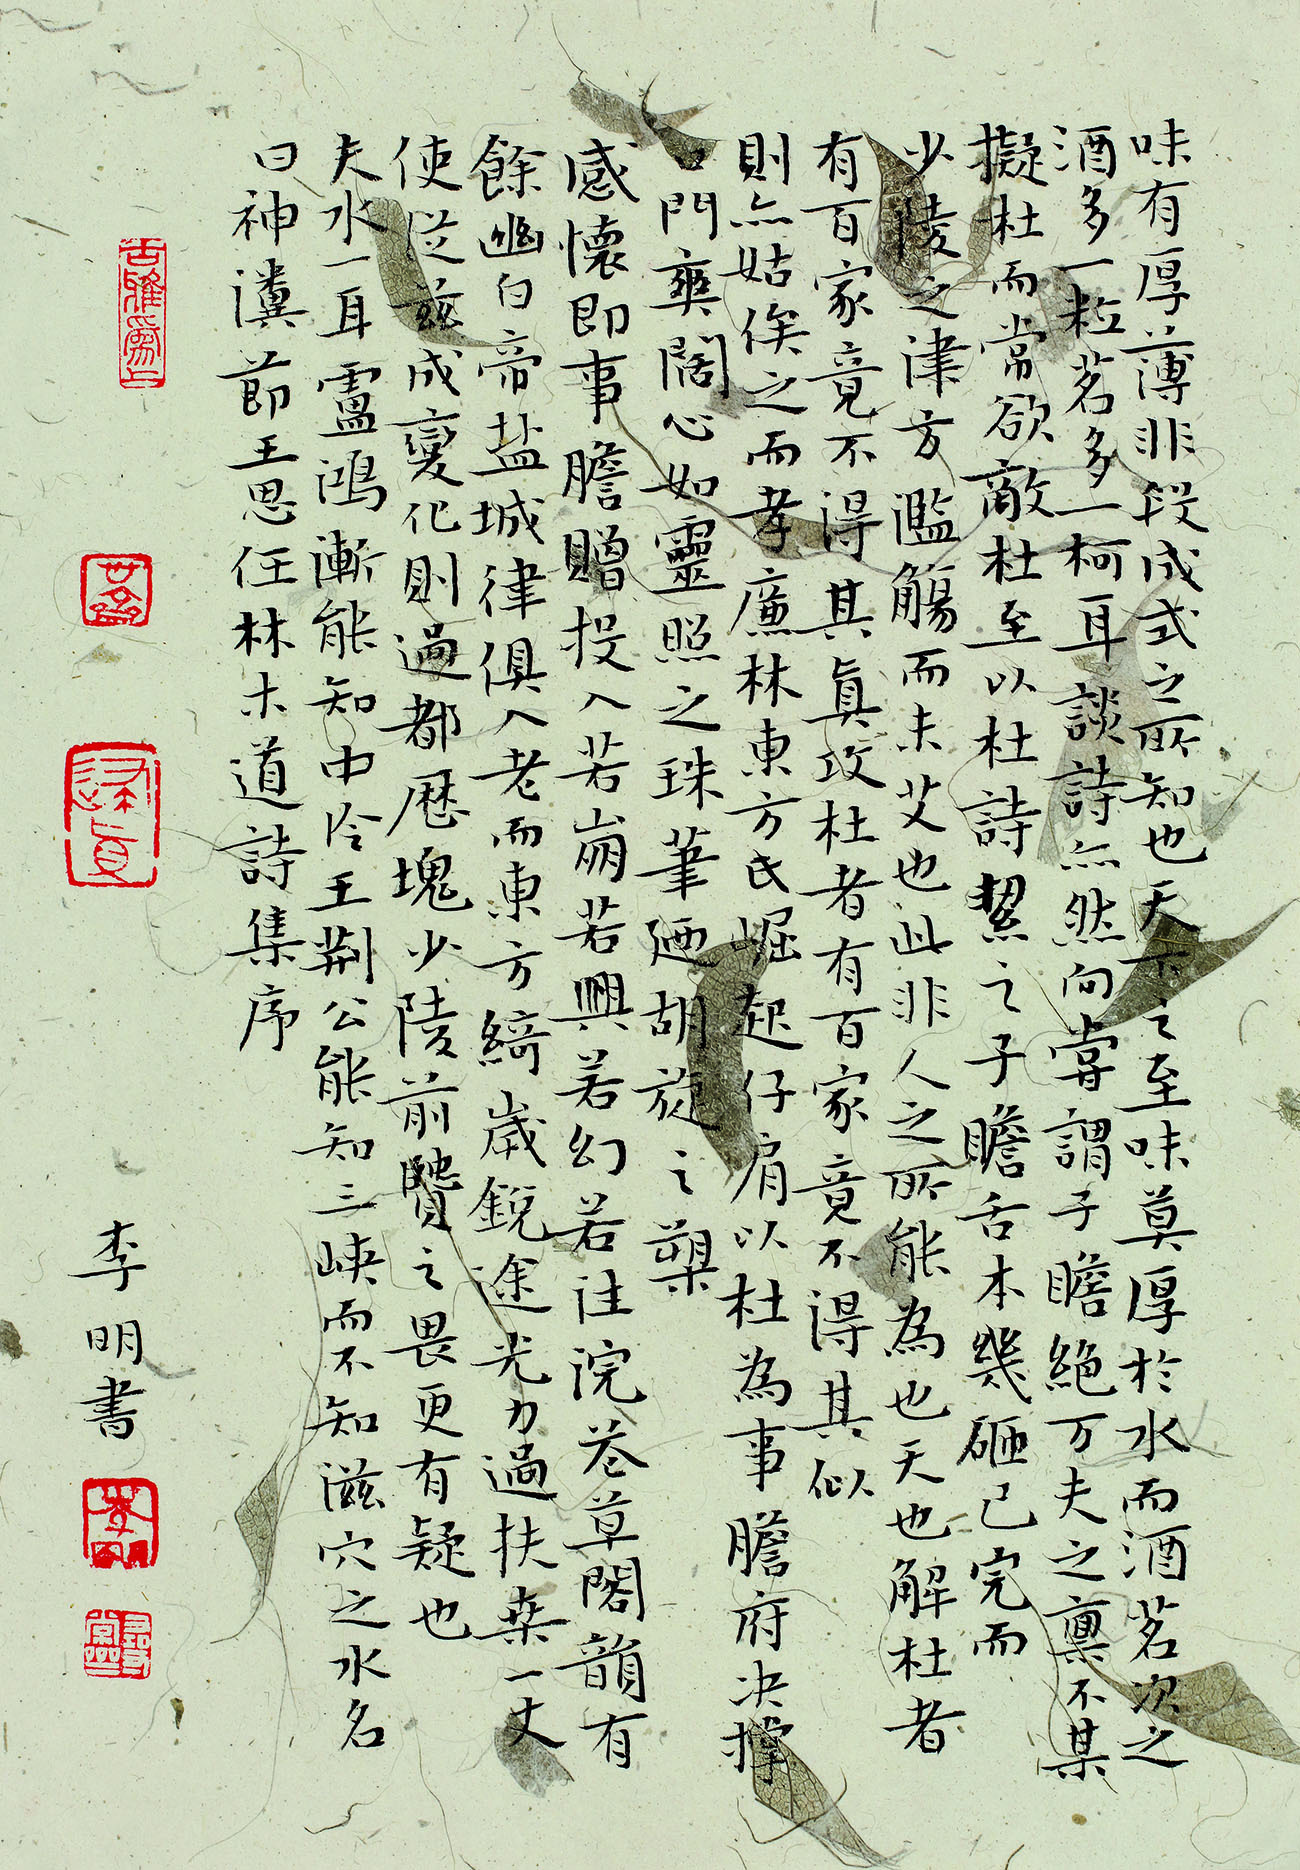 味有厚薄非段成式之所知也天下之至味莫厚於水而酒茗次之
酒多一粒茗多一柯耳談詩亦然向嘗謂子瞻絕万夫之禀不某
擬杜而常欲敵杜至以杜詩絜之子瞻舌本幾砸已完而
少陵之津方濫觴而未艾也此非人之所能為也天也解杜者
有百家竟不得其眞攻杜者有百家竟不得其似
則亦姑俟之而孝廉林東方氏崛起仔肩以杜為事膽府决撑
口門爽闊心如靈照之珠筆廼胡旋之槊
感懷即事膽贈投入若崩若興若幻若诖浣花草閣韻有
餘幽白帝盐城律俱入老而東方綺歲銳途光力過扶桒一丈
使從兹成變化則過都歷塊少陵前賛之畏更有疑也
夫水一耳盧鴻漸能知中泠王荆公能知三峽而不知滋穴之水名
曰神瀵節王思任林木道詩集序
李明書